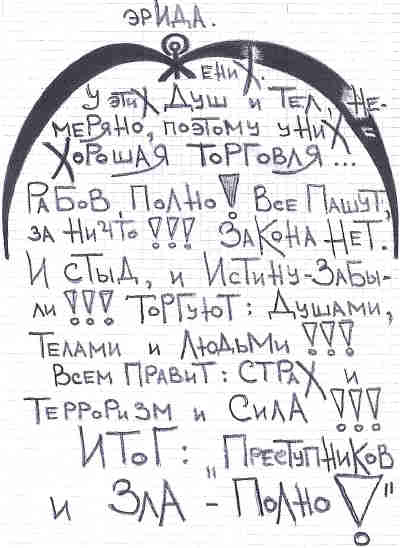 ЭРИДА.
ЕНИХ.
У ЭТИХ ДУШ И ТЕЛ, НЕ-
МЕРЯНО, ПОЭТОМУ У НИХ
ХОРОШАЯ ТОРГОВЛЯ...
РАБОВ ПОЛНО! ВСЕ ПАШУТ,
ЗА НИЧТО!!! ЗАКОНА НЕТ.
И СТЫД, И ИСТИНУ-ЗАБЫ-
ЛИ!!! ТОРГУЮТ: ДУШАМИ,
ТЕЛАМИ И ЛЮДЬМИ!!!
ВСЕМ ПРАВИТ: СТРАХ И
ТЕРРОРИЗМ И СИЛА!!!
ИТОГ: „ПРЕСТУПНИКОВ
И ЗЛА - ПОЛНО!"